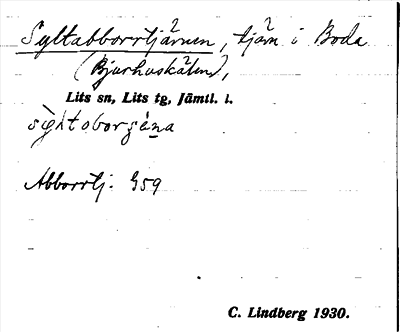 Syltabborrtjärnen, tjärn i Boda
(Bjurhuskälen),
Lits sn, Lits tg, Jämtl. l.
Abborrtj. 959
C. Lindberg 1930.